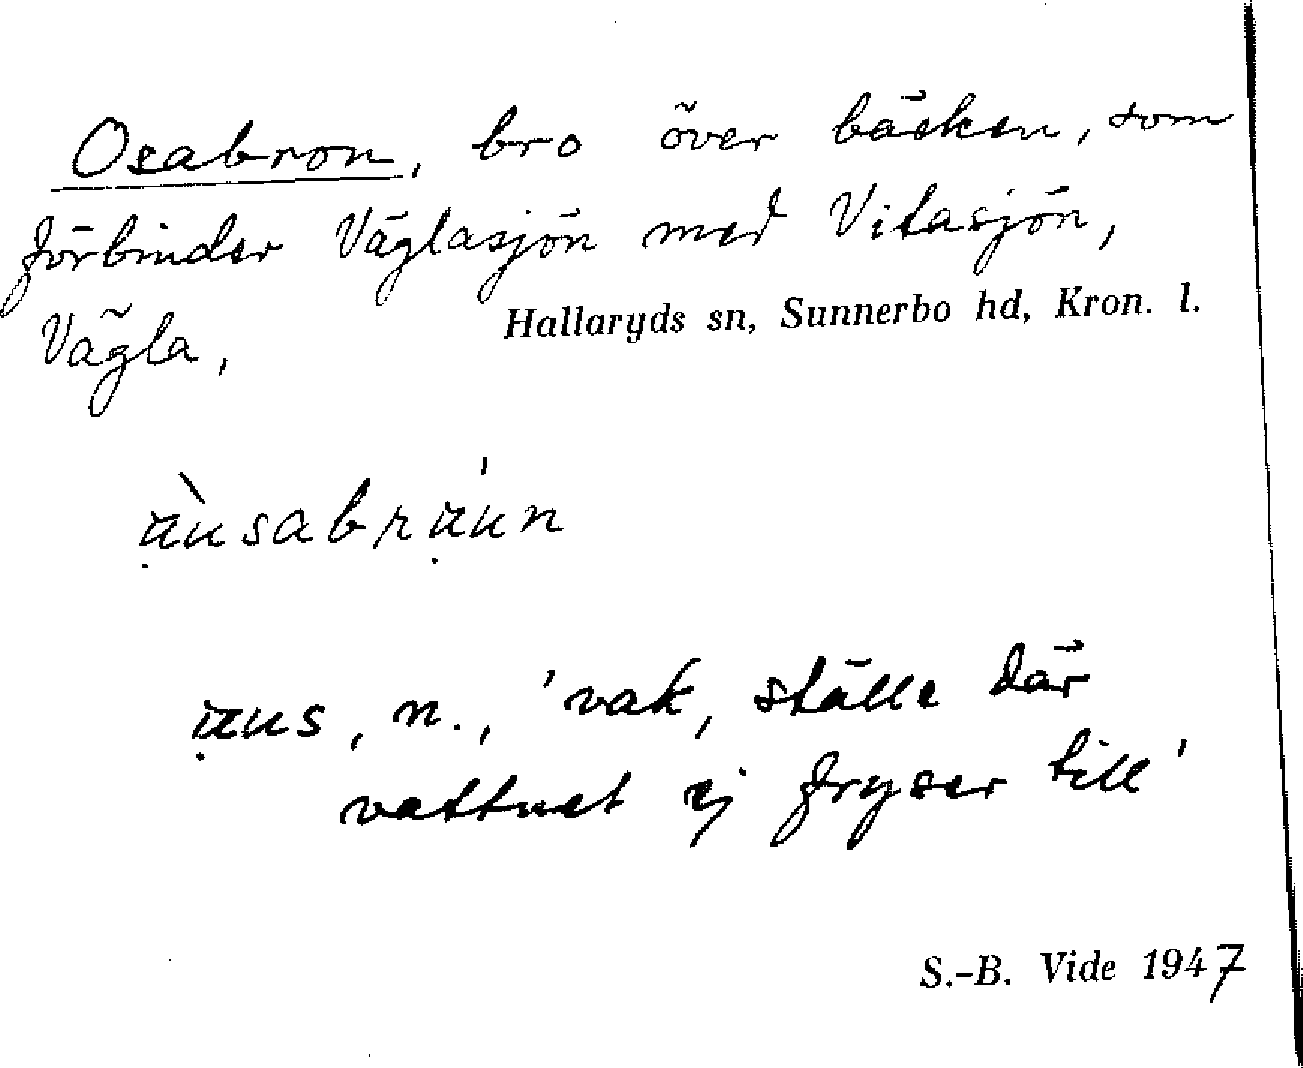 Osabron, bro över bäcken, som
förbinder Väglasjön med Vitasjön,
Vägla, Hallaryds sn, Sunnerbo hd, Kron. l.
n., 'vak, ställe där
vattnet ej fryser till'
S.-B. Vide 1947